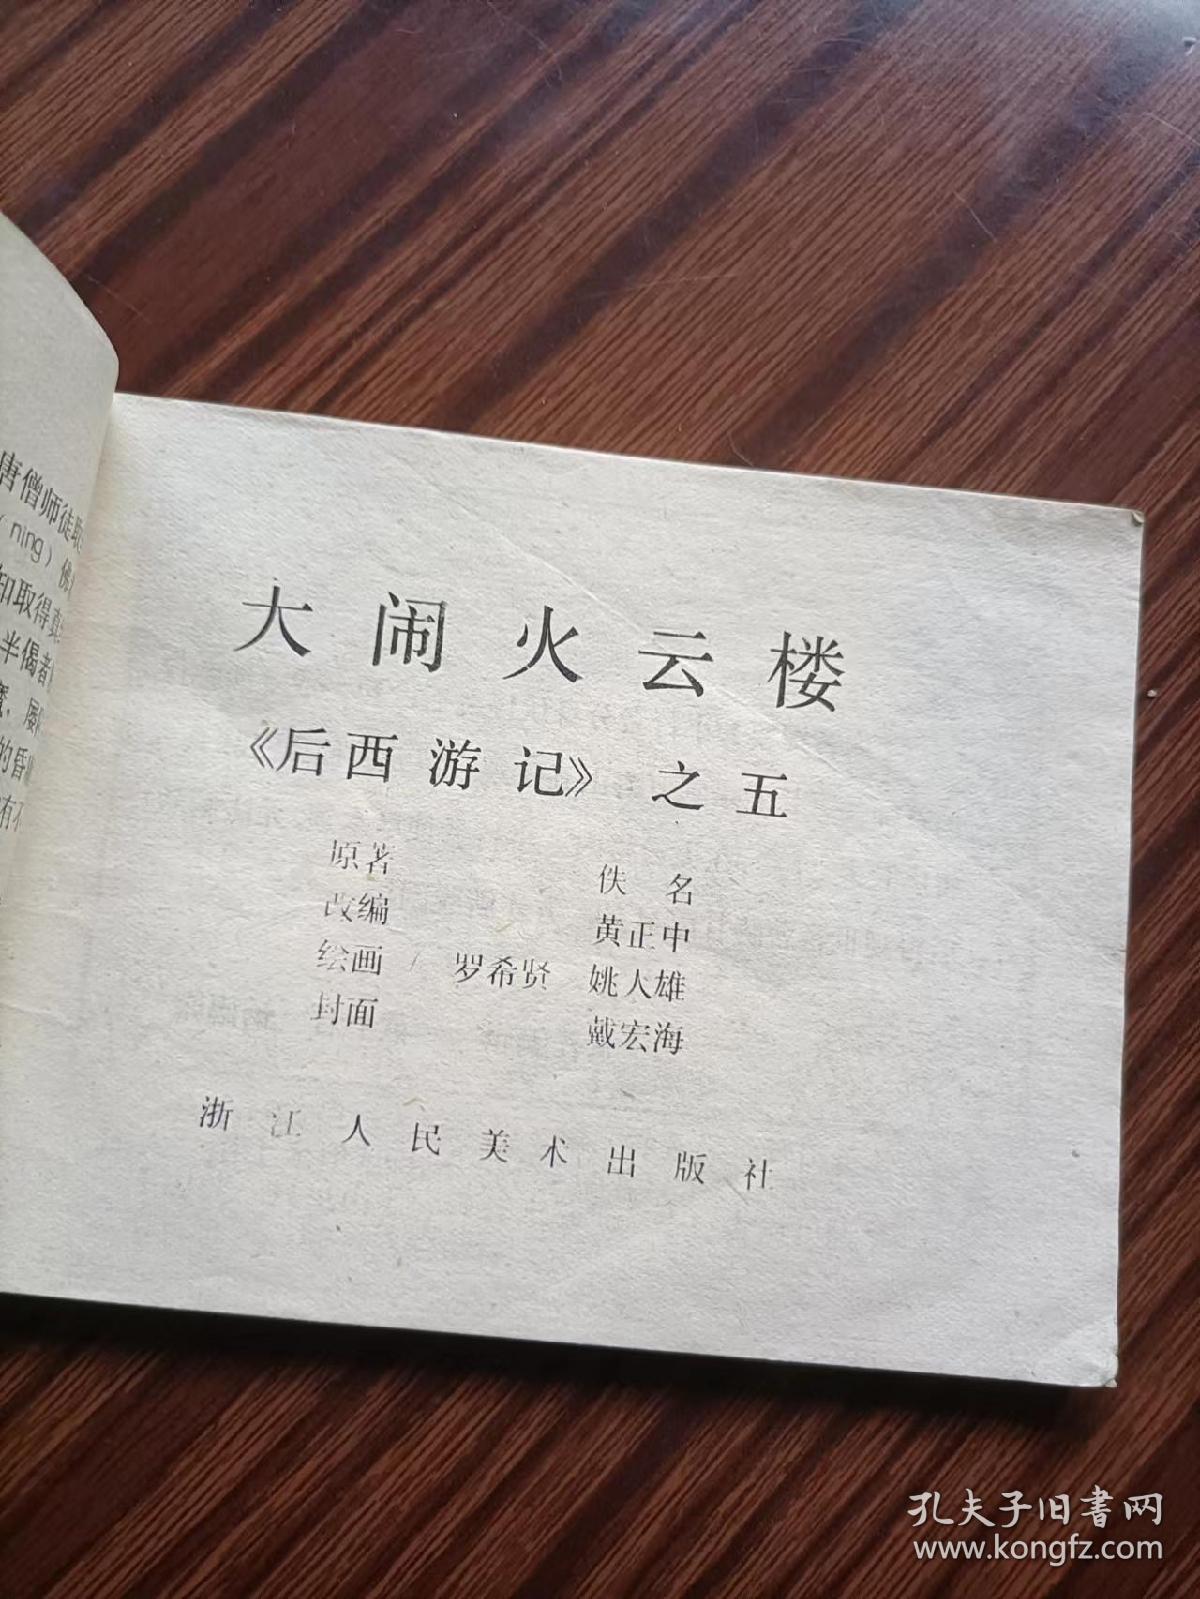 唐僧师徒取
(ning) 佛
知取得真
半偈者
魔,屡
的昏
有不
大闹火云楼
《后西游记》之五
原著 佚名
改编 黄正中
绘画 / 罗希贤 姚人雄
封面 戴宏海
浙江人民美术出版社
孔夫子旧书网
www.kongfz.com